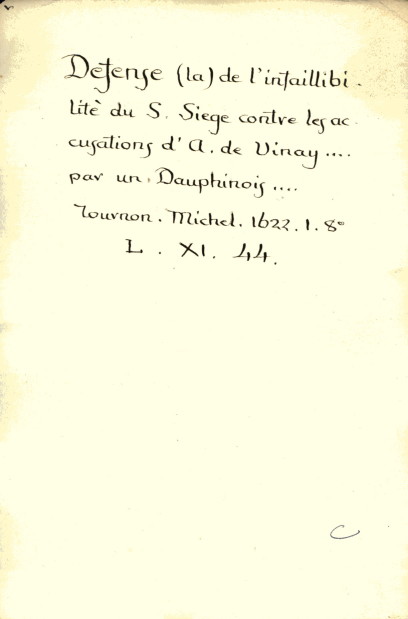 Defense (la) de l'infaillibi-
lité du S. Siege contre les ac-
cusations d' A. de Vinay....
par un Dauphinois....
Tournon. Michel. 1622. 1. 8°
L. XI. 44.
C